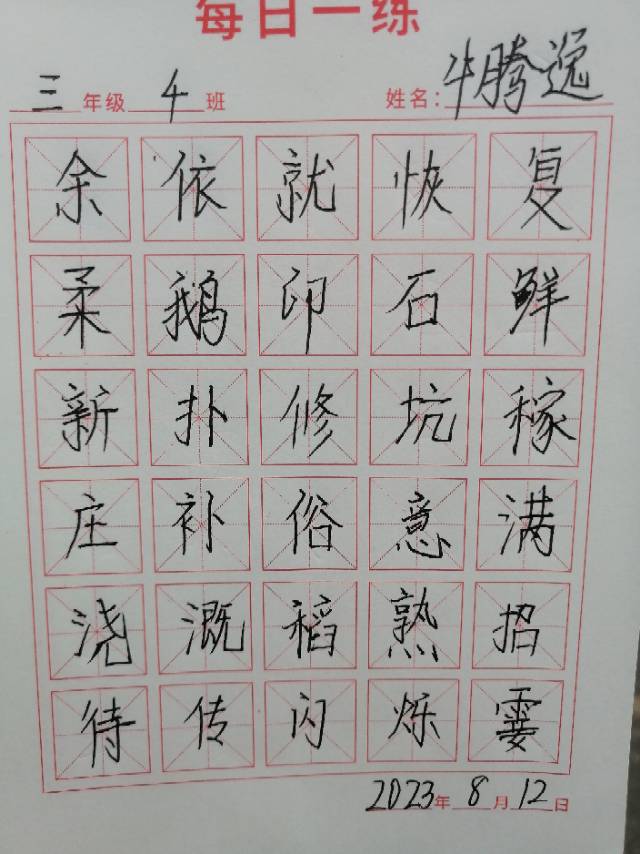 每日一练
三年级4班 姓名:牛腾逸
余依就恢复
柔鹅印石鲜
新扑修坑稼
庄补俗意满
浇溉稻熟招
待传闪烁霎
2023年8月12日